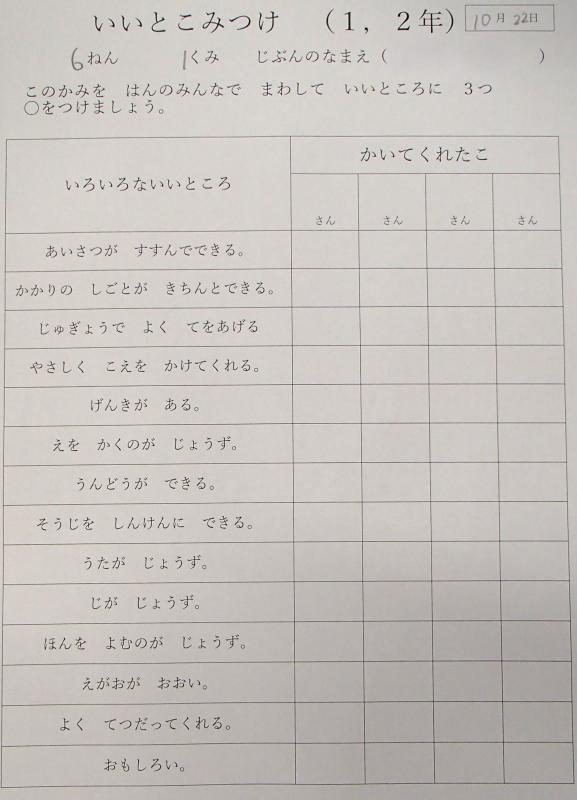 いいとこみつけ　（１，２年） 10月 22日
6ねん　1くみ　じぶんのなまえ（　　　　　　　　）
このかみを　はんのみんなで　まわして　いいところに　３つ
○をつけましょう。
いろいろないいところ
かいてくれたこ
さん　さん　さん　さん
あいさつが　すすんでできる。
かかりの　しごとが　きちんとできる。
じゅぎょうで　よく　てをあげる
やさしく　こえを　かけてくれる。
げんきが　ある。
えを　かくのが　じょうず。
うんどうが　できる。
そうじを　しんけんに　できる。
うたが　じょうず。
じが　じょうず。
ほんを　よむのが　じょうず。
えがおが　おおい。
よく　てつだってくれる。
おもしろい。